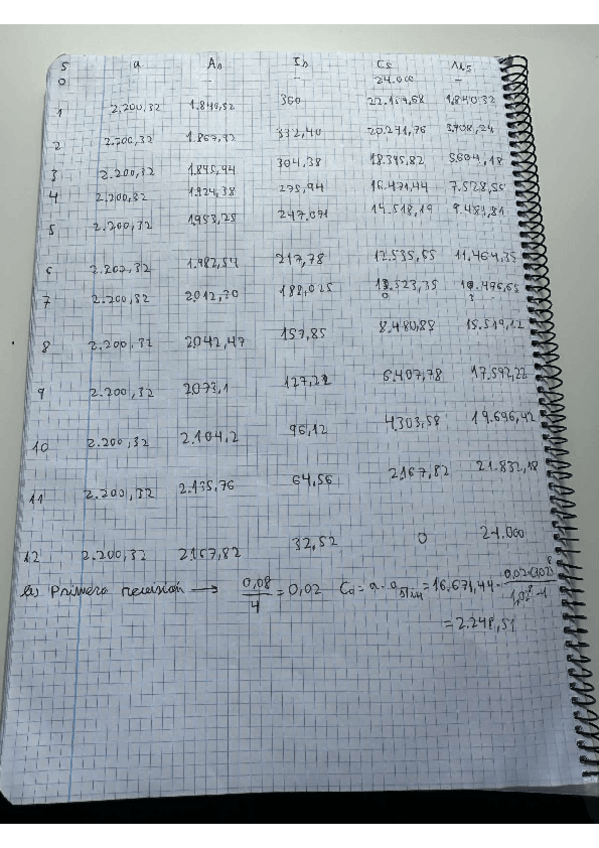 S a As Is Cs Ms
0 - - - 24.000 -
1 2.200,32 1.840,32 360 22.159,68 1.840,32
2 2.200,32 1.867,92 332,40 20.291,76 3.708,24
3 2.200,32 1.895,94 304,38 18.395,82 5.604,18
4 2.200,32 1.924,38 275,94 16.471,44 7.528,56
5 2.200,32 1.953,25 247,071 14.518,19 9.481,81
6 2.200,32 1.982,54 217,78 12.535,65 11.464,35
7 2.200,32 2.012,30 188,025 10.523,35 13.476,65
8 2.200,32 2042,47 157,85 8.480,88 15.519,12
9 2.200,32 2073,1 127,22 6.407,78 17.592,22
10 2.200,32 2.104,2 96,12 4.303,58 19.696,42
11 2.200,32 2.135,76 64,56 2.167,82 21.832,18
12 2.200,32 2167,82 32,52 0 24.000
b) Primera revisión → 0,08/4 = 0,02 C0 = a · a = 16.671,44 · 0,02·(1,02)^8 / 1,02^8 - 1
= 2.248,51